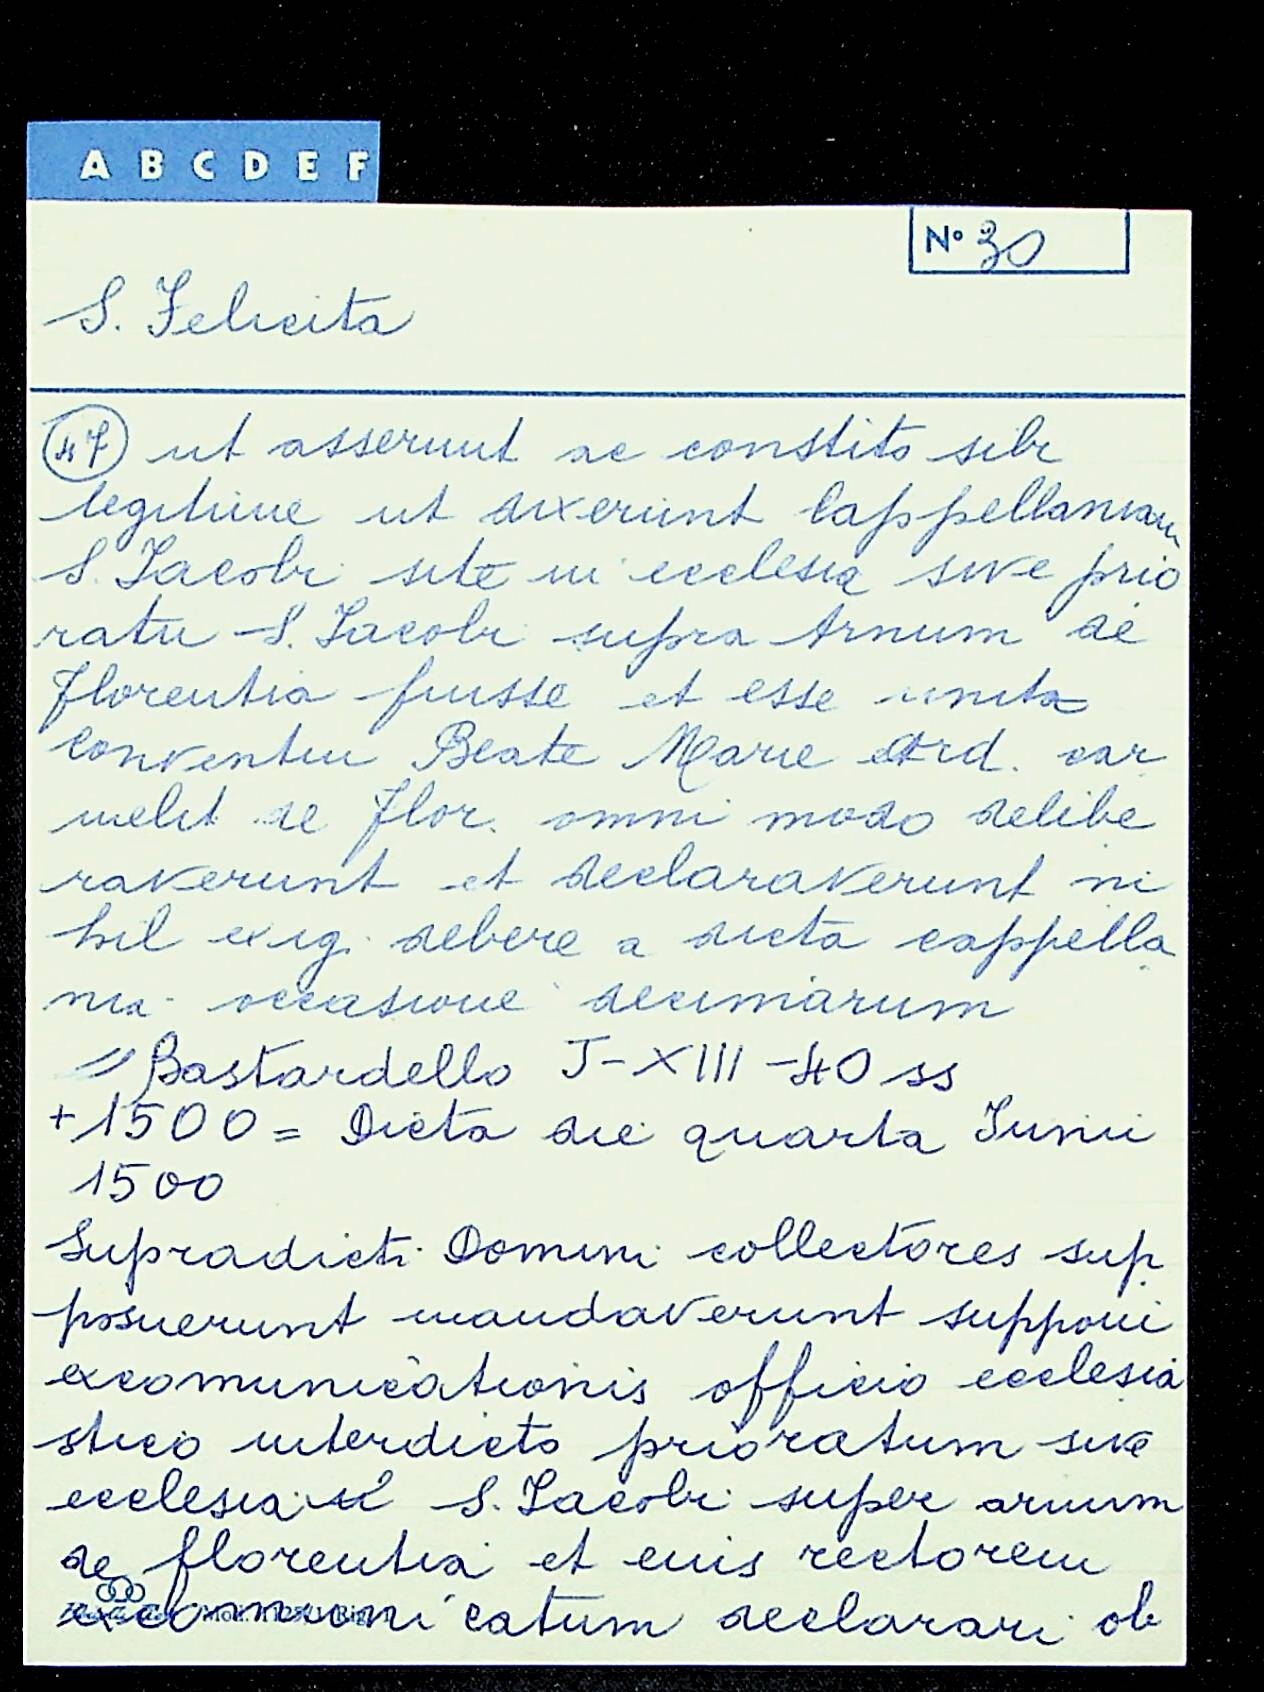 A B C D E F
Nº 30
S. Felicita
47 ut asserunt ac constito sibi
legitime ut dixerunt Cappellaniam
S. Jacobi site in ecclesia sive prio
ratu S. Jacobi supra Arnum de
florentia fuisse et esse unita
conventui Beate Marie Ord. car
melit de flor. omni modo delibe
raverunt et declaraverunt ni
hil exig. debere a dicta cappella
nia occasione decimarum
= Bastardello J-XIII-40 ss
+1500 = Dicta die quarta Junii
1500
Supradicti Domini collectores sup
posuerunt mandaverunt supponi
excomunicationis officio ecclesia
stico interdicto prioratum sive
ecclesia S. Jacobi super arnum
de florentia et eius rectorem
excommunicatum declarari ob